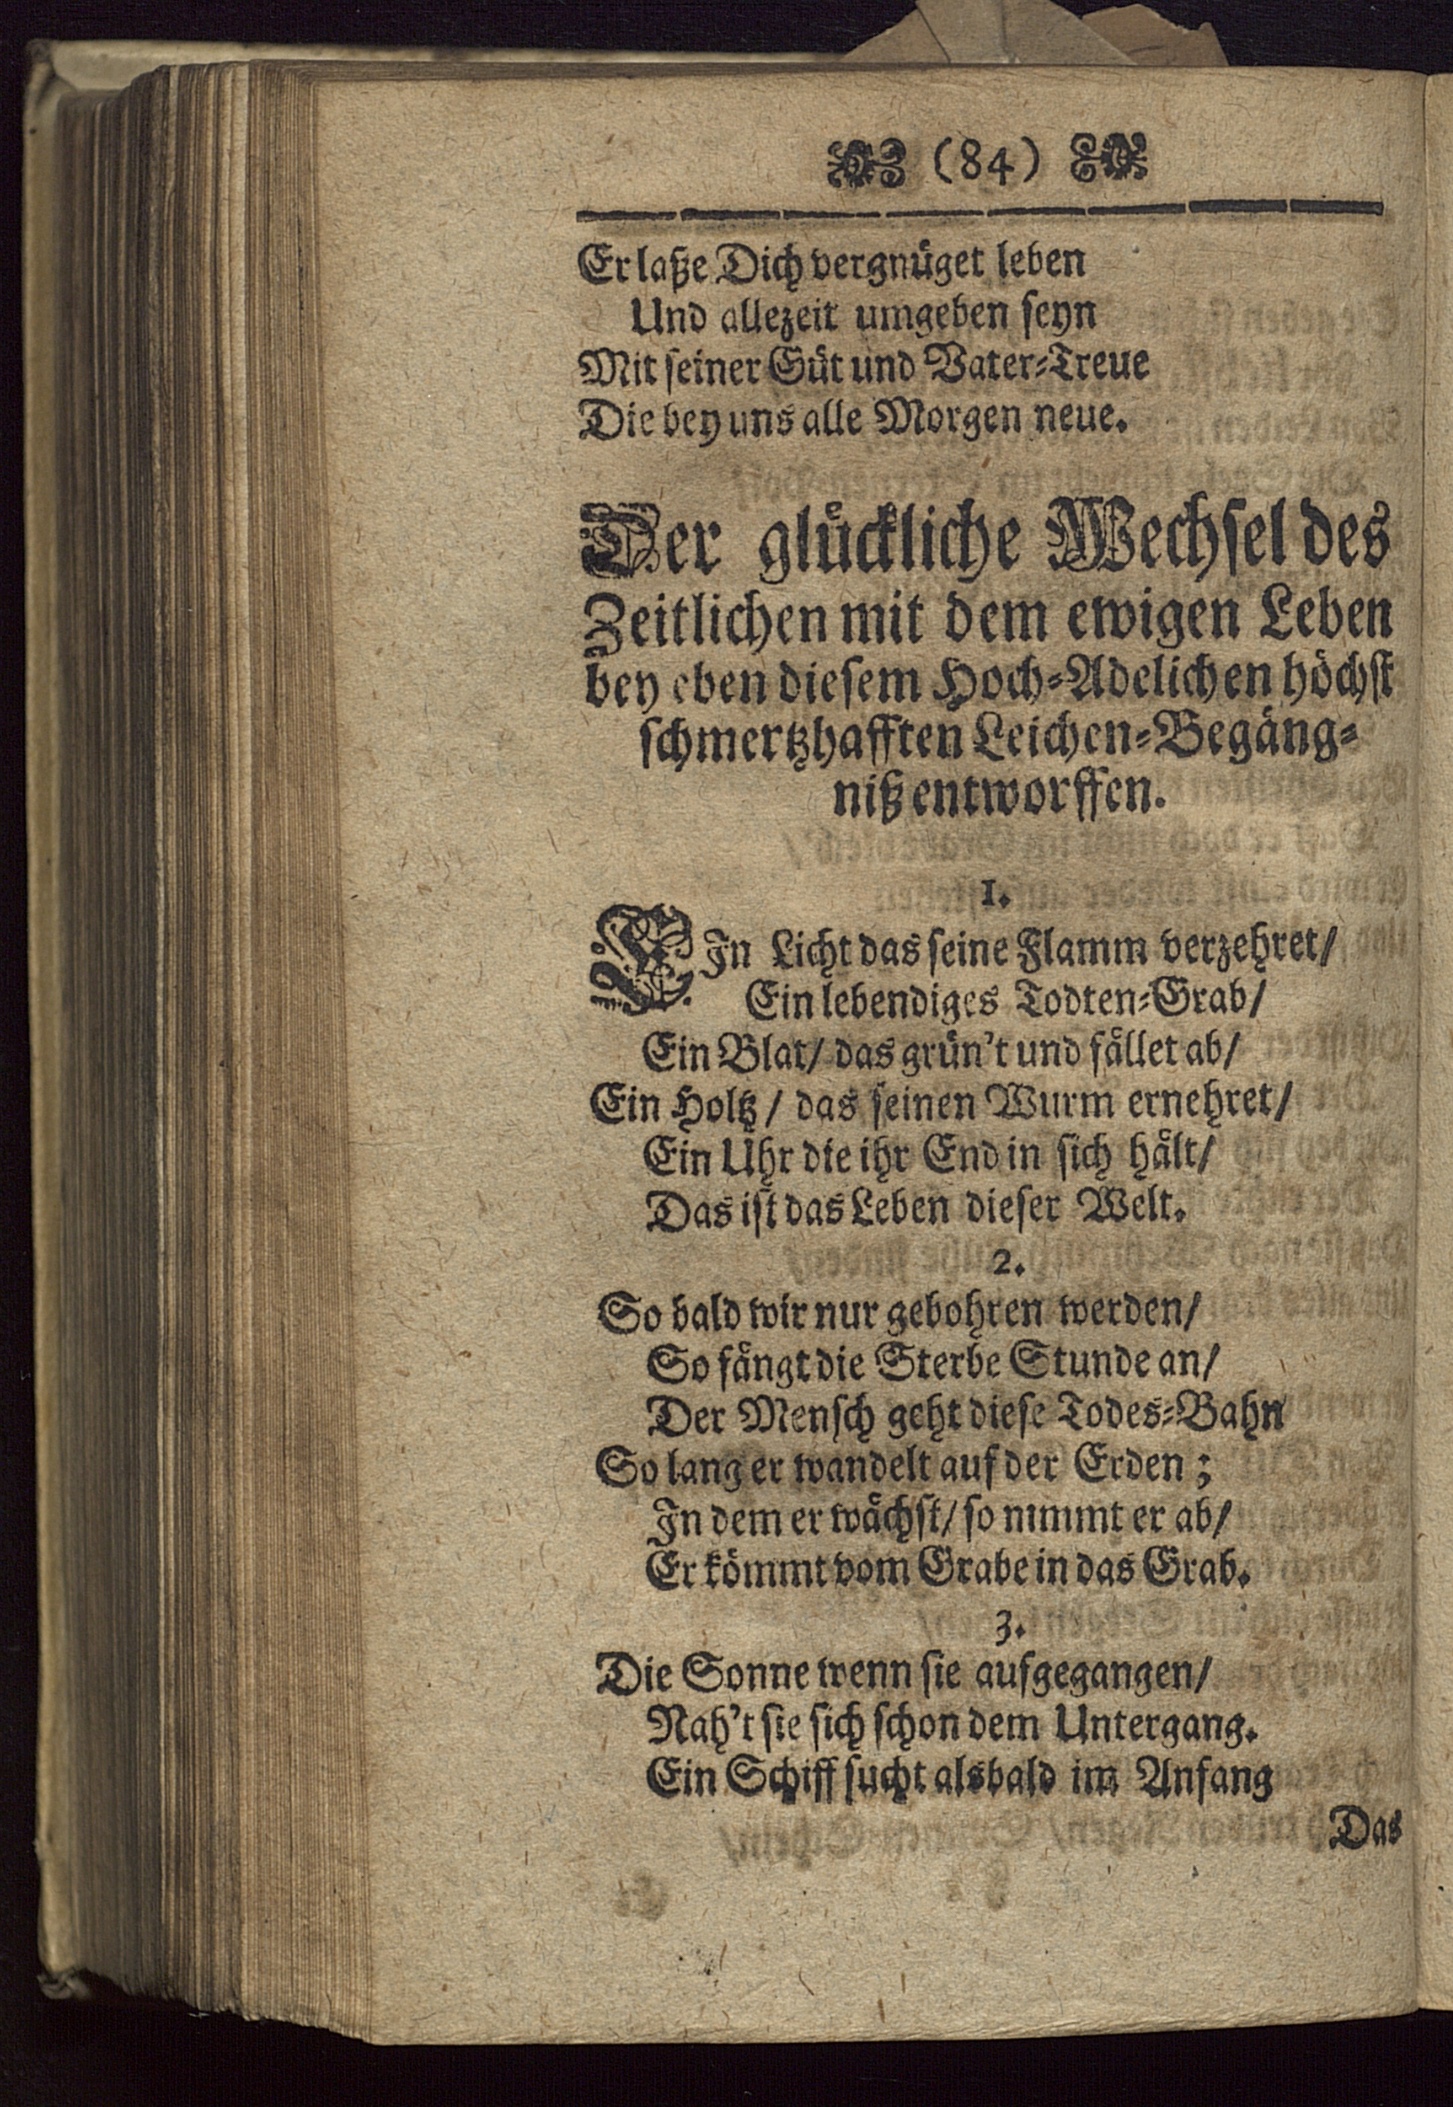 (84)
Er laße Dich vergnüget leben
Und allezeit umgeben seyn
Mit seiner Güt und Vater-Treue
Die bey uns alle Morgen neue.
Der glückliche Wechsel des
Zeitlichen mit dem ewigen Leben
bey eben diesem Hoch-Adelichen höchst
schmertzhafften Leichen-Begäng-
niß entworffen.
1.
EIn Licht das seine Flamm verzehret/
Ein lebendiges Todten-Grab/
Ein Blat/ das grün't und fället ab/
Ein Holtz/ das seinen Wurm ernehret/
Ein Uhr die ihr End in sich hält/
Das ist das Leben dieser Welt.
2.
So bald wir nur gebohren werden/
So fängt die Sterbe Stunde an/
Der Mensch geht diese Todes-Bahn
So lang er wandelt auf der Erden;
In dem er wächst/ so nimmt er ab/
Er kömmt vom Grabe in das Grab.
3.
Die Sonne wenn sie aufgegangen/
Nah't sie sich schon dem Untergang.
Ein Schiff sucht alsbald im Anfang
Das